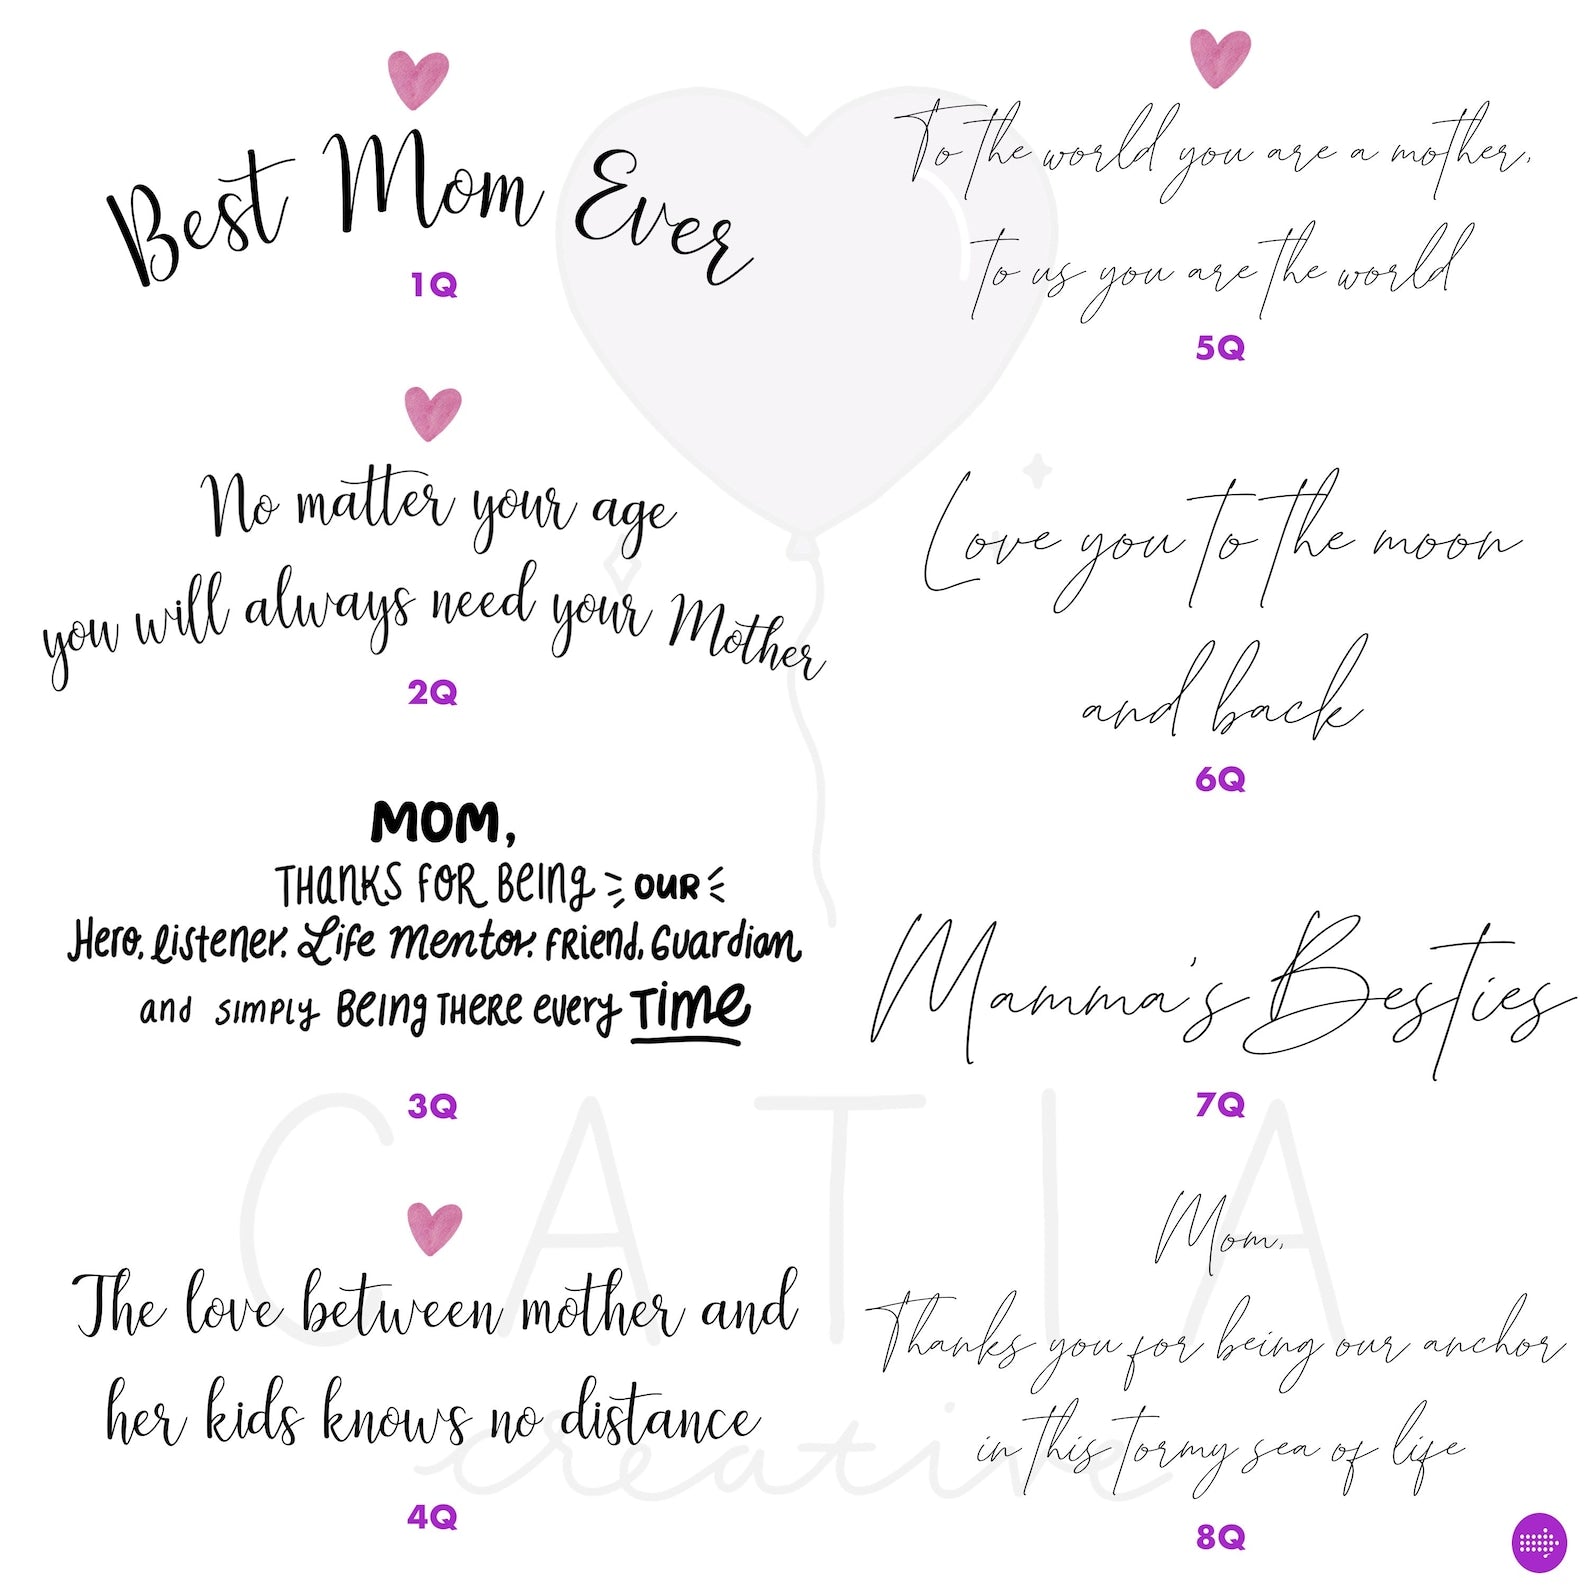 Best Mom Ever
1Q
No matter your age
you will always need your Mother
2Q
MOM,
THANKS FOR BEING OUR
Hero, listener, Life Mentor, FRiend, Guardian
and SIMPLY BEING THERE every TIME
3Q
The love between mother and
her kids knows no distance
4Q
To the world you are a mother,
to us you are the world
5Q
Love you to the moon
and back
6Q
Mamma's Besties
7Q
Mom,
Thanks you for being our anchor
in this tormy sea of life
8Q
CATIA
creative